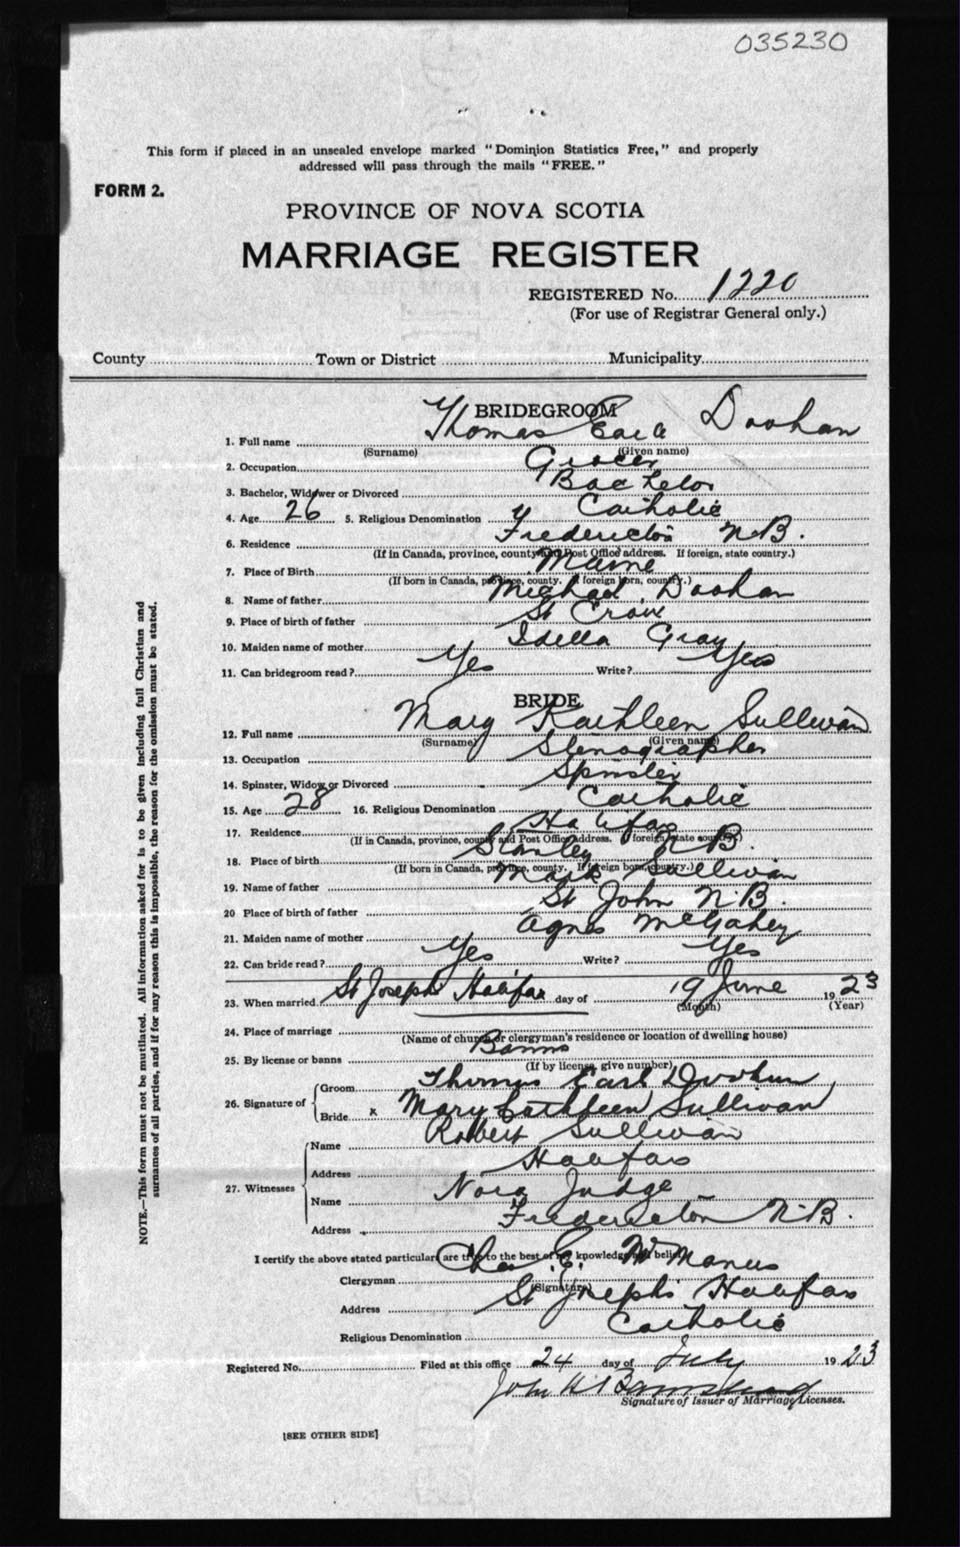 035230
This form if placed in an unsealed envelope marked "Dominion Statistics Free," and properly
addressed will pass through the mails "FREE."
FORM 2.
PROVINCE OF NOVA SCOTIA
MARRIAGE REGISTER
REGISTERED No. 1220
(For use of Registrar General only.)
County Town or District Municipality
BRIDEGROOM
1. Full name Thomas Earl Doohan
(Surname) (Given name)
2. Occupation Grocer
3. Bachelor, Widower or Divorced Bachelor
4. Age 26 5. Religious Denomination Catholic
6. Residence Fredericton N.B.
(If in Canada, province, county and Post Office address. If foreign, state country.)
7. Place of Birth Maine
(If born in Canada, province, county. If foreign born, country.)
8. Name of father Michael Doohan
9. Place of birth of father St Croix
10. Maiden name of mother Idella Gray
11. Can bridegroom read? Yes Write? Yes
BRIDE
12. Full name Mary Kathleen Sullivan
(Surname) (Given name)
13. Occupation Stenographer
14. Spinster, Widow or Divorced Spinster
15. Age 28 16. Religious Denomination Catholic
17. Residence Halifax
(If in Canada, province, county and Post Office address. If foreign state country.)
18. Place of birth Stanley N.B.
(If born in Canada, province, county. If foreign born, country.)
19. Name of father Mark Sullivan
20 Place of birth of father St John N.B.
21. Maiden name of mother Agnes McGahey
22. Can bride read? Yes Write? Yes
23. When married St Joseph's Halifax day of 19 June 1923
(Month) (Year)
24. Place of marriage
(Name of church or clergyman's residence or location of dwelling house)
25. By license or banns Banns
(If by license, give number)
26. Signature of Groom Thomas Earl Doohan
Bride x Mary Cathleen Sullivan
27. Witnesses Name Robert Sullivan
Address Halifax
Name Nora Judge
Address Fredericton N.B.
I certify the above stated particulars are true to the best of my knowledge and belief.
Clergyman Chas. E. McManus
(Signature)
Address St Joseph's Halifax
Religious Denomination Catholic
Registered No. Filed at this office 24 day of July 1923
John H
Signature of Issuer of Marriage Licenses.
[SEE OTHER SIDE]
NOTE.—This form must not be mutilated. All information asked for is to be given including full Christian and
surnames of all parties, and if for any reason this is impossible, the reason for the omission must be stated.